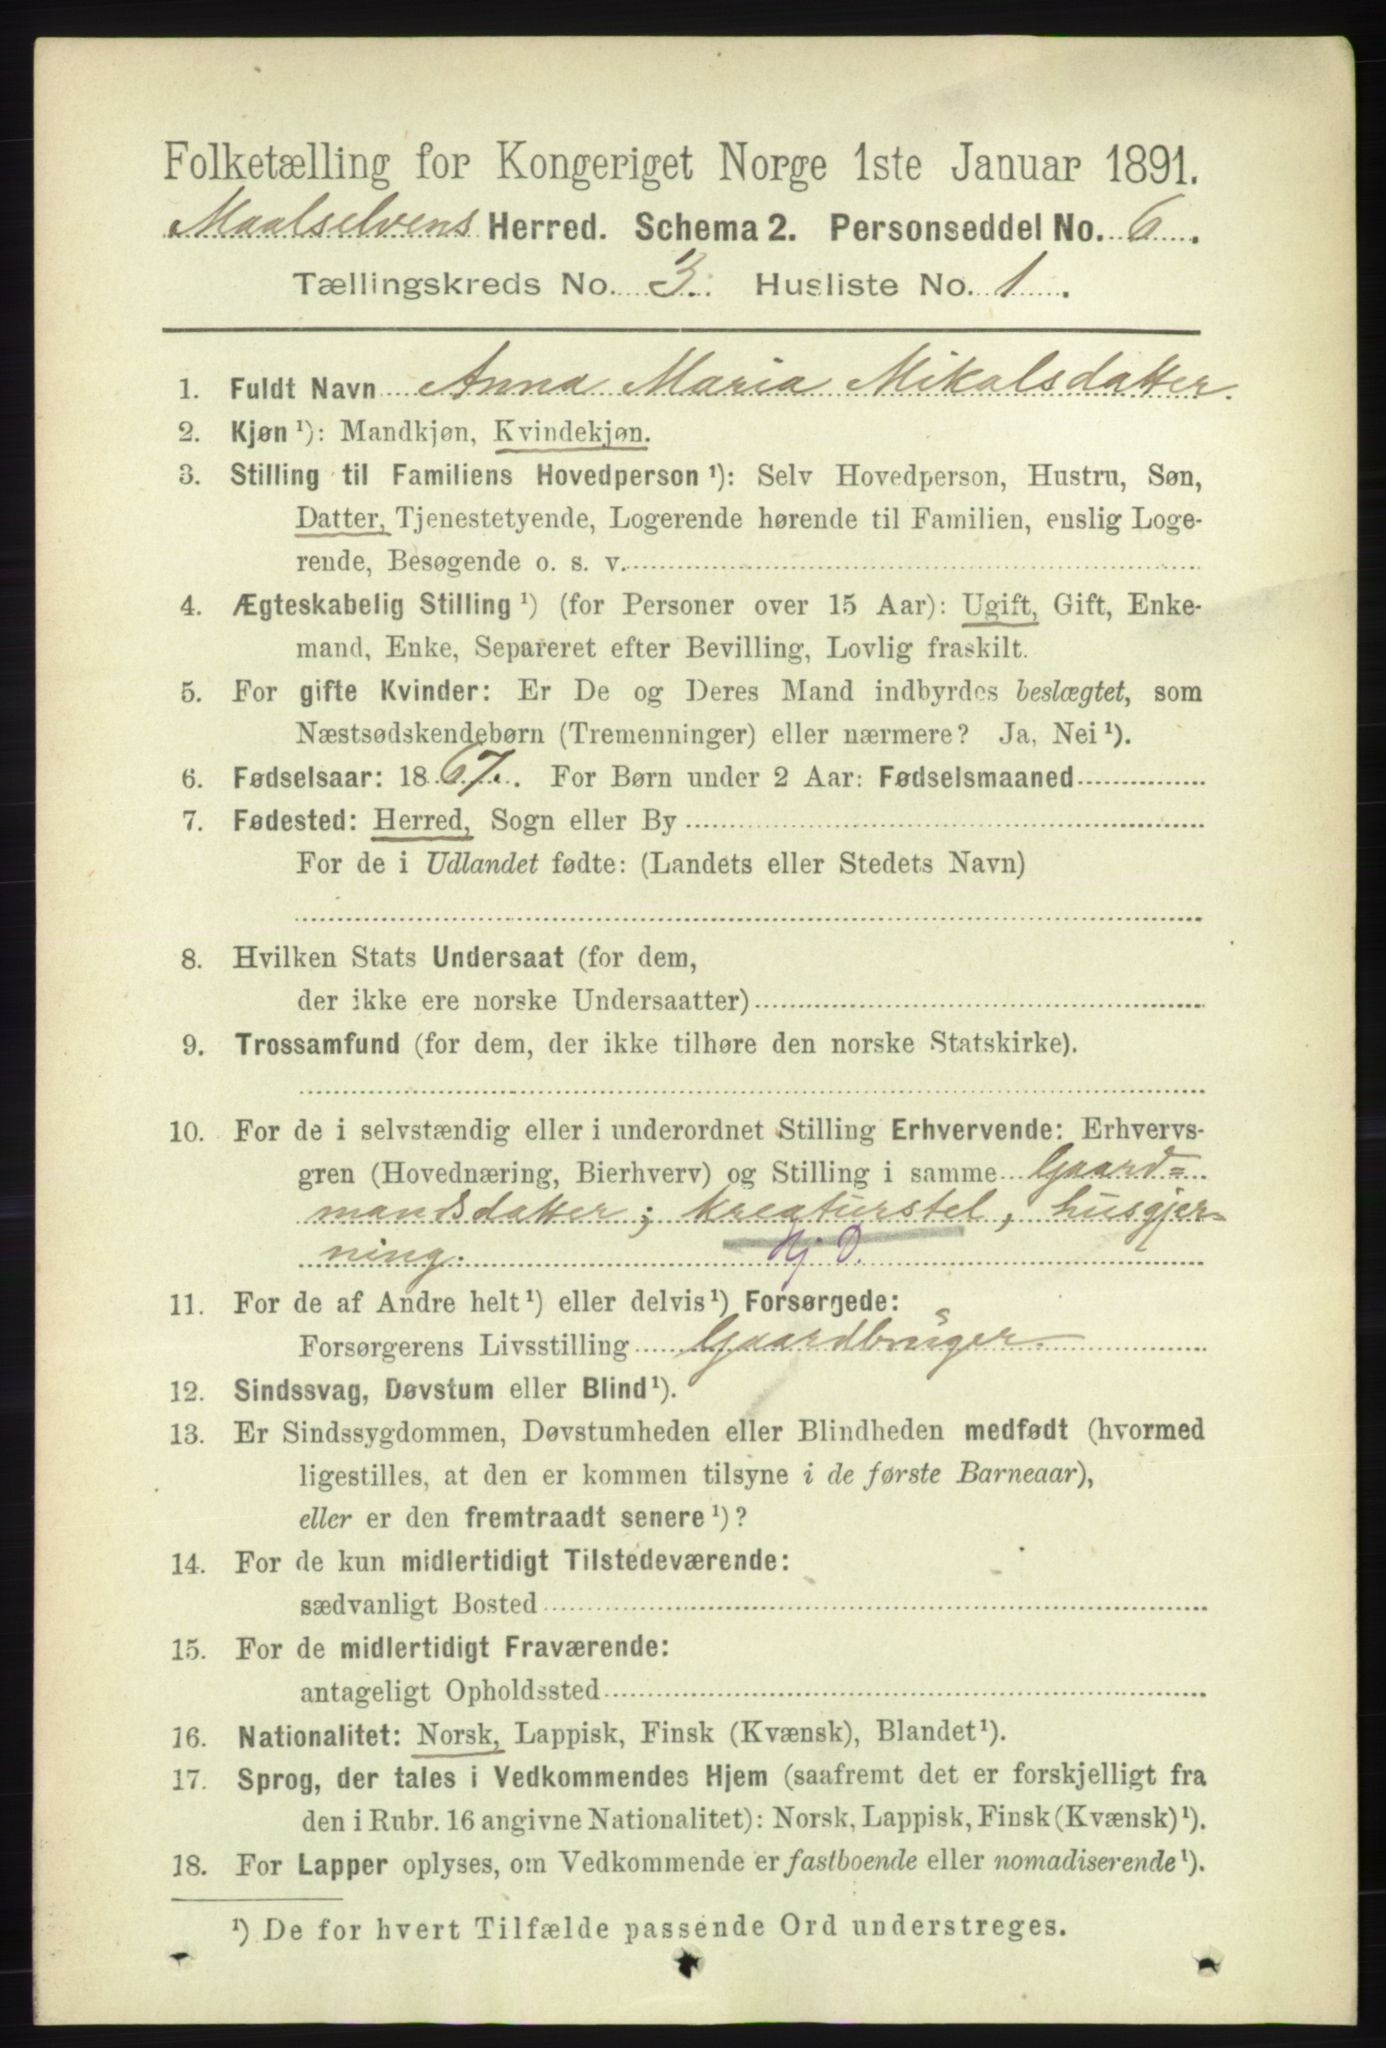 Folketælling for Kongeriget Norge 1ste Januar 1891.
Maalselvens Herred. Schema 2. Personseddel No. 6.
Tællingskreds No. 3. Husliste No. 1.
1. Fuldt Navn Anna Maria Mikalsdatter.
2. Kjøn ¹): Mandkjøn, Kvindekjøn.
3. Stilling til Familiens Hovedperson ¹): Selv Hovedperson, Hustru, Søn,
Datter, Tjenestetyende, Logerende hørende til Familien, enslig Loge-
rende, Besøgende o. s. v.
4. Ægteskabelig Stilling ¹) (for Personer over 15 Aar): Ugift, Gift, Enke-
mand, Enke, Separeret efter Bevilling, Lovlig fraskilt.
5. For gifte Kvinder: Er De og Deres Mand indbyrdes beslægtet, som
Næstsødskendebørn (Tremenninger) eller nærmere? Ja, Nei ¹).
6. Fødselsaar: 1867. For Børn under 2 Aar: Fødselsmaaned
7. Fødested: Herred, Sogn eller By
For de i Udlandet fødte: (Landets eller Stedets Navn)
8. Hvilken Stats Undersaat (for dem,
der ikke ere norske Undersaatter)
9. Trossamfund (for dem, der ikke tilhøre den norske Statskirke).
10. For de i selvstændig eller i underordnet Stilling Erhvervende: Erhvervs-
gren (Hovednæring, Bierhverv) og Stilling i samme Gaard=
mandsdatter; kreaturstel, husgjer=
ning. Hj D.
11. For de af Andre helt ¹) eller delvis ¹) Forsørgede:
Forsørgerens Livsstilling Gaardbruger
12. Sindssvag, Døvstum eller Blind ¹).
13. Er Sindssygdommen, Døvstumheden eller Blindheden medfødt (hvormed
ligestilles, at den er kommen tilsyne i de første Barneaar),
eller er den fremtraadt senere ¹)?
14. For de kun midlertidigt Tilstedeværende:
sædvanligt Bosted
15. For de midlertidigt Fraværende:
antageligt Opholdssted
16. Nationalitet: Norsk, Lappisk, Finsk (Kvænsk), Blandet ¹).
17. Sprog, der tales i Vedkommendes Hjem (saafremt det er forskjelligt fra
den i Rubr. 16 angivne Nationalitet): Norsk, Lappisk, Finsk (Kvænsk) ¹).
18. For Lapper oplyses, om Vedkommende er fastboende eller nomadiserende ¹).
¹) De for hvert Tilfælde passende Ord understreges.